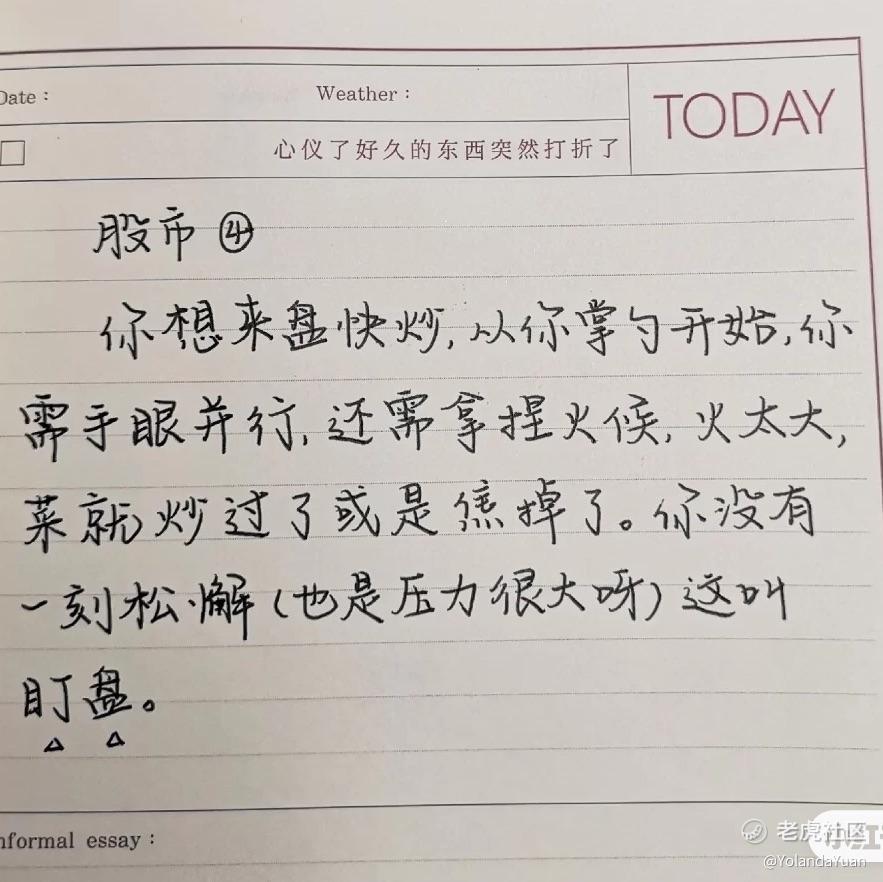 Date：
Weather：
TODAY
心仪了好久的东西突然打折了
股市④
你想来盘快炒,从你掌勺开始,你
需手眼并行,还需拿捏火候,火太大,
菜就炒过了或是焦掉了。你没有
一刻松懈(也是压力很大呀)这叫
盯盘。
nformal essay：
老虎社区
@YolandaYuan